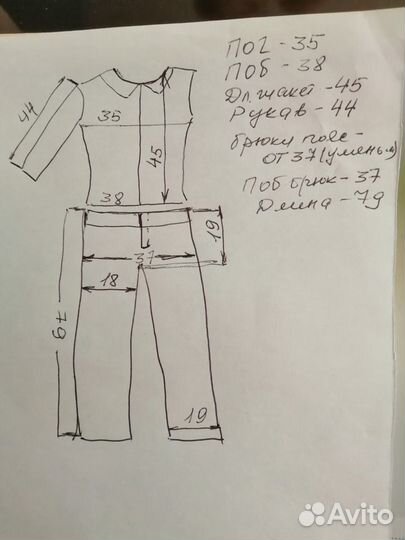 ПОГ - 35
ПОБ - 38
Дл. жакет - 45
Рукав - 44
брюки пояс -
от 37 (уменьш)
ПОБ брюк - 37
Длина - 79
44
35
45
38
19
37
18
79
19
Avito